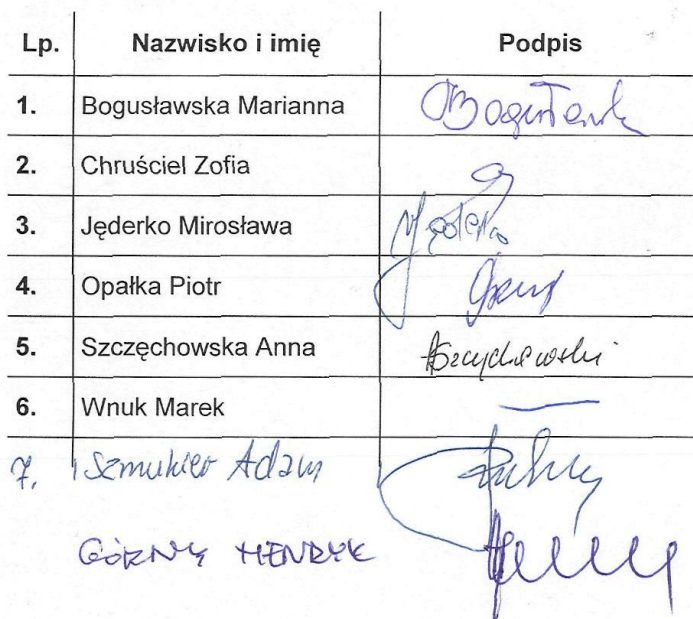 Lp. Nazwisko i imię Podpis
1. Bogusławska Marianna
2. Chruściel Zofia
3. Jęderko Mirosława
4. Opałka Piotr
5. Szczęchowska Anna
6. Wnuk Marek
7. Szmukier Adam
GÓRNY HENRYK